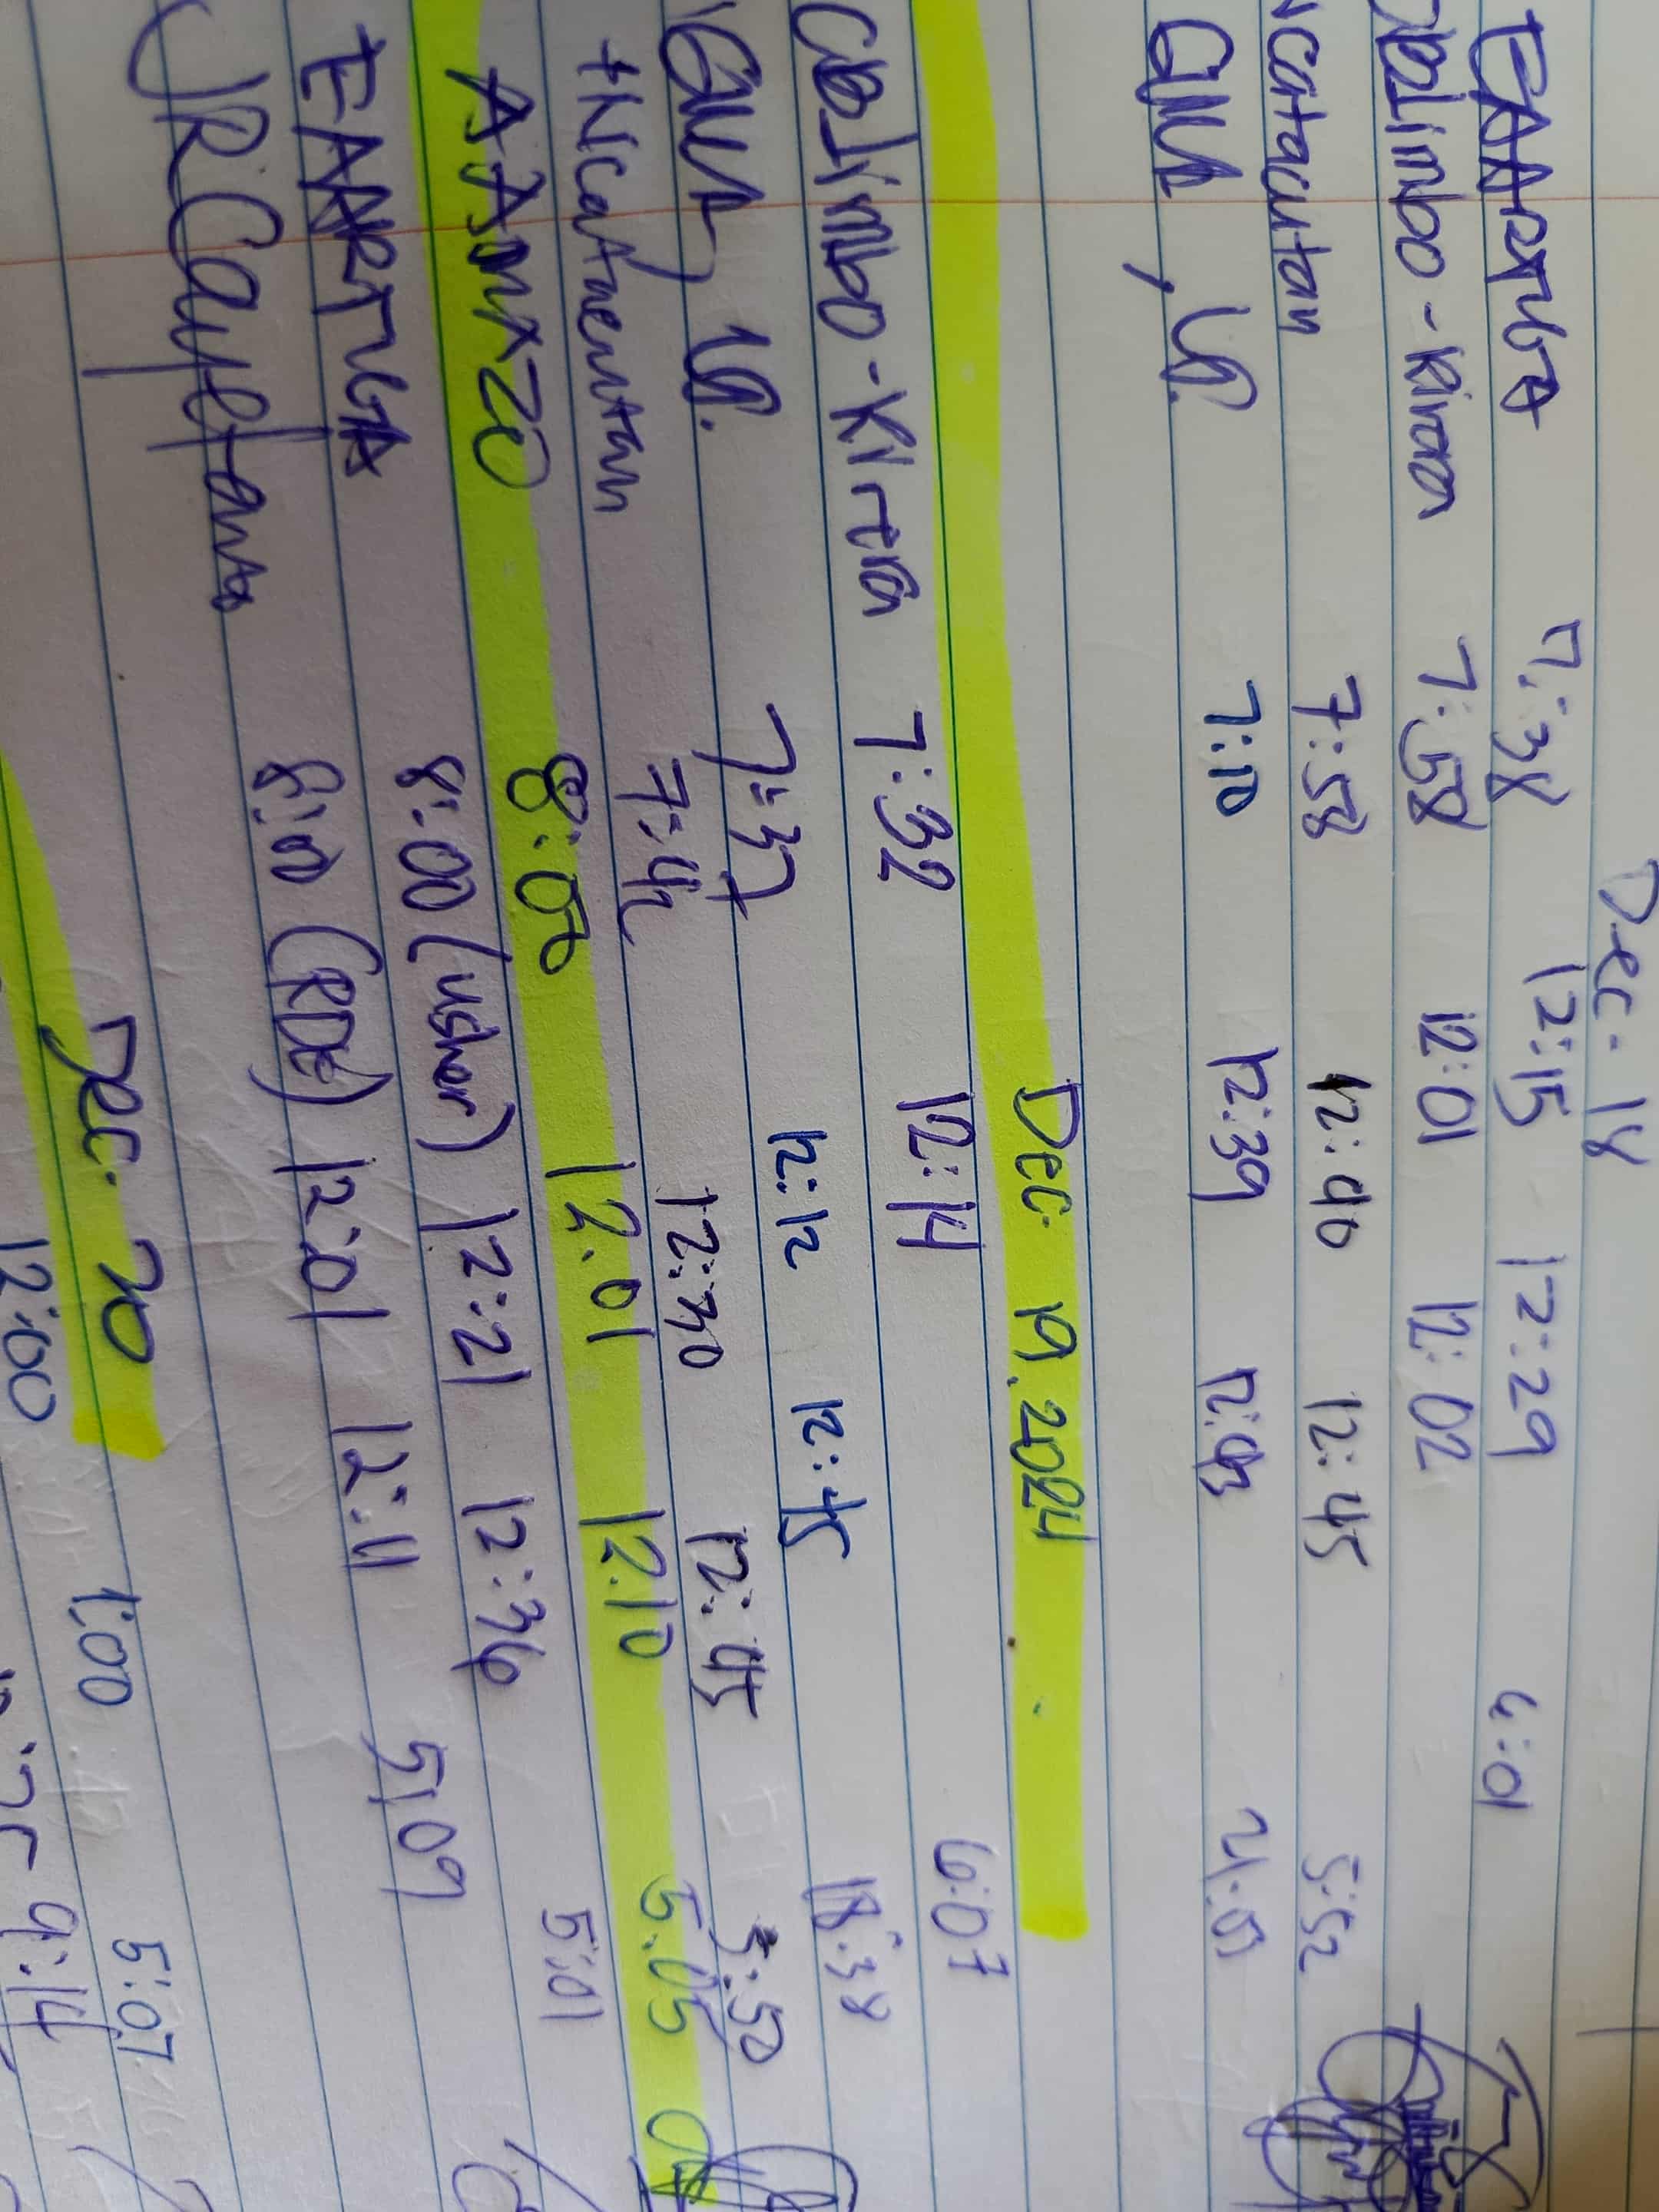 Dec. 18
EAARTUGA 7:38 12:15 12:29 4:01
CBLimbo-Kirara 7:58 12:01 12:02
Ncatacutan 7:58 12:40 12:45 5:52
7:10 12:39 12:43 4:03
Dec. 19, 2024
CBLimbo-Kirara 7:32 12:14 6:07
7:37 12:12 12:45 18:38
7:42 12:30 12:45 5:50
8:00 12.01 12.10 5.05
EAARTUGA 8:00 (usher) 12:21 12:36 5:01
JRCayetano 8:00 (RDE) 12:01 12:11 5:09
Dec. 20
12:00 1:00 5:07
9:14